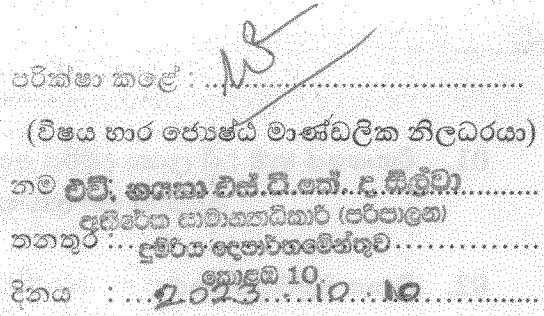 පරීක්ෂා කළේ : ........................................
(විෂය භාර ජ්‍යෙෂ්ඨ මාණ්ඩලික නිලධරයා)
නම එච්. එස්.ටී.කේ. ද සිල්වා
අතිරේක සාමාන්‍යාධිකාරී (පරිපාලන)
තනතුර : දුම්රිය දෙපාර්තමේන්තුව
කොළඹ 10.
දිනය : 2023 10 10